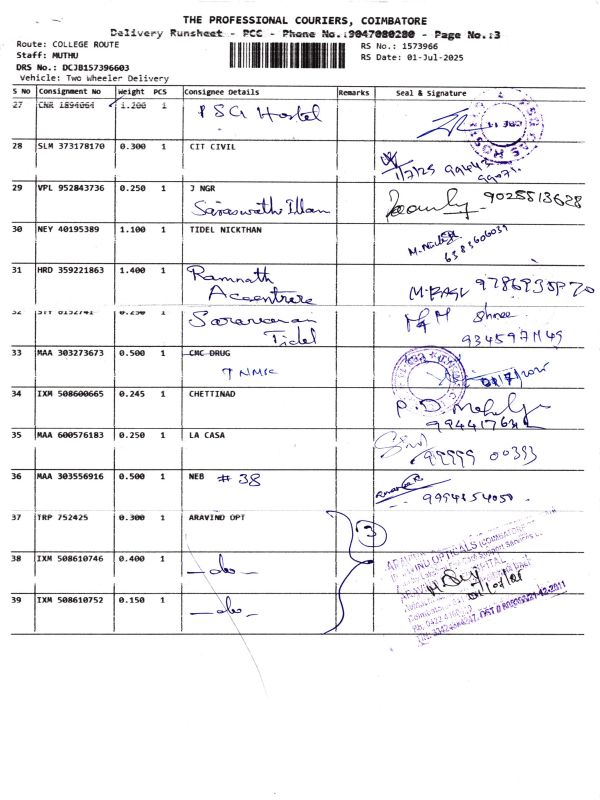 THE PROFESSIONAL COURIERS, COIMBATORE
Delivery Runsheet - PCC - Phone No.:9047080280 - Page No.:3
Route: COLLEGE ROUTE
Staff: MUTHU
DRS No.: DCJB157396603
Vehicle: Two Wheeler Delivery
RS No.: 1573966
RS Date: 01-Jul-2025
S No Consignment No Weight PCS Consignee Details Remarks Seal & Signature
27 CNR 1894064 1.200 1 PSG Hostel
28 SLM 373178170 0.300 1 CIT CIVIL
1/7/25
29 VPL 952843736 0.250 1 J NGR
Saraswathi Illam 9025513628
30 NEY 40195389 1.100 1 TIDEL NICKTHAN
6383606039
31 HRD 359221863 1.400 1 Ramnath
Accentrere
32 STY 0.250 1 Saravanan
Tidel
Shree
33 MAA 303273673 0.500 1 CMC DRUG
TNMSC
34 IXM 508600665 0.245 1 CHETTINAD
35 MAA 600576183 0.250 1 LA CASA
99999 00393
36 MAA 303556916 0.500 1 NEB # 38
9994854050
37 TRP 752425 0.300 1 ARAVIND OPT
3
38 IXM 508610746 0.400 1 -do-
39 IXM 508610752 0.150 1 -do-
ARAVIND OPTICALS (COIMBATORE